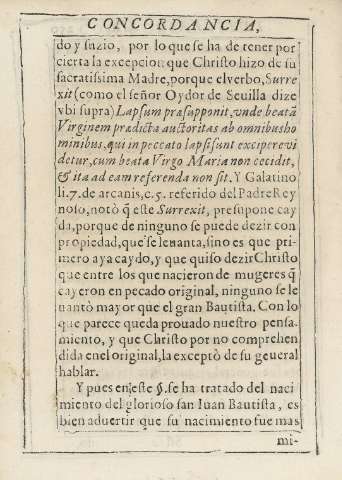 CONCORDANCIA,
do y suzio, por lo que se ha de tener por
cierta la excepcion que Christo hizo de su
sacratissima Madre, porque el verbo, Surre
xit (como el señor Oydor de Seuilla dize
vbi supra) Lapsum præsupponit, vnde beatã
Virginem prædicta auctoritas ab omnibus ho
minibus, qui in peccato lapsi sunt excipere vi
detur, cum beata Virgo Maria non cecidit,
& ita ad eam referenda non sit. Y Galatino
li. 7. de arcanis, c. 5. referido del Padre Rey
noso, notò q̃ este Surrexit, presupone cay
da, porque de ninguno se puede dezir con
propiedad, que se leuanta, sino es que pri-
mero aya caydo, y que quiso dezir Christo
que entre los que nacieron de mugeres q̃
cayeron en pecado original, ninguno se le
uantò mayor que el gran Bautista. Con lo
que parece queda prouado nuestro pensa-
miento, y que Christo por no comprehen
dida en el original, la exceptò de su geueral
hablar.
Y pues en este §. se ha tratado del naci
miento del glorioso san Iuan Bautista, es
bien aduertir que su nacimiento fue mas
mi-